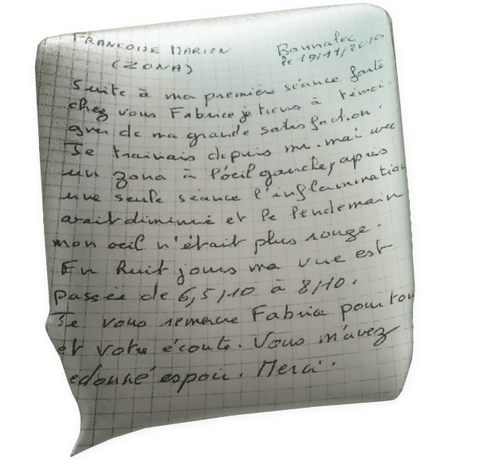 FRANCOISE MARION
(ZONA)
Bannalec
le 19/11/2010
Suite à ma première séance faite
chez vous Fabrice je tiens à témoi-
gner de ma grande satisfaction.
Je trainais depuis mi-mai avec
un zona à l'oeil gauche, après
une seule séance l'inflammation
avait diminué et le lendemain
mon oeil n'était plus rouge.
En huit jours ma vue est
passée de 6,5/10 à 8/10.
Je vous remercie Fabrice pour tou
et votre écoute. Vous m'avez
edonné espoir. Merci.